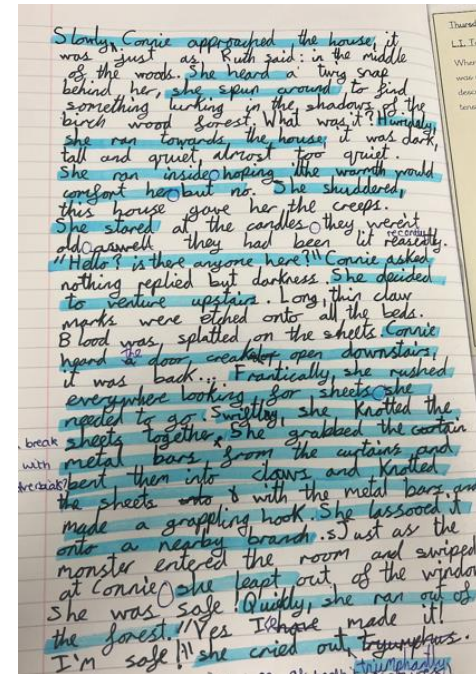 Slowly, Connie approached the house, it
was just as Ruth said: in the middle
of the woods. She heard a twig snap
behind her, she spun around to find
something lurking in the shadows of the
birch wood forest. What was it? Hurriedly,
she ran towards the house, it was dark,
tall and quiet, almost too quiet.
She ran inside hoping the warmth would
comfort her but no. She shuddered,
this house gave her the creeps.
She stared at the candles they weren't
recently
old aswell they had been lit reasently.
"Hello? is there anyone here?" Connie asked
nothing replied but darkness. She decided
to venture upstairs. Long, thin claw
marks were etched onto all the beds.
Blood was, splatted on the sheets. Connie
heard the door, open downstairs,
it was back... Frantically, she rushed
everywhere looking for sheets she
needed to go. Swiftly, she knotted the
sheets together. She grabbed the
metal bars, from the curtains and
bent them into claws and knotted
the sheets with the metal bars and
made a grappling hook. She lassooed it
onto a nearby branch. Just as the
monster entered the room and swiped
at Connie she leapt out of the window
She was safe! Quickly, she ran out of
the forest. "Yes I have made it!
I'm safe!" she cried out,
triumphantly
break
with
Thursd
L.I. T
When
was
desc